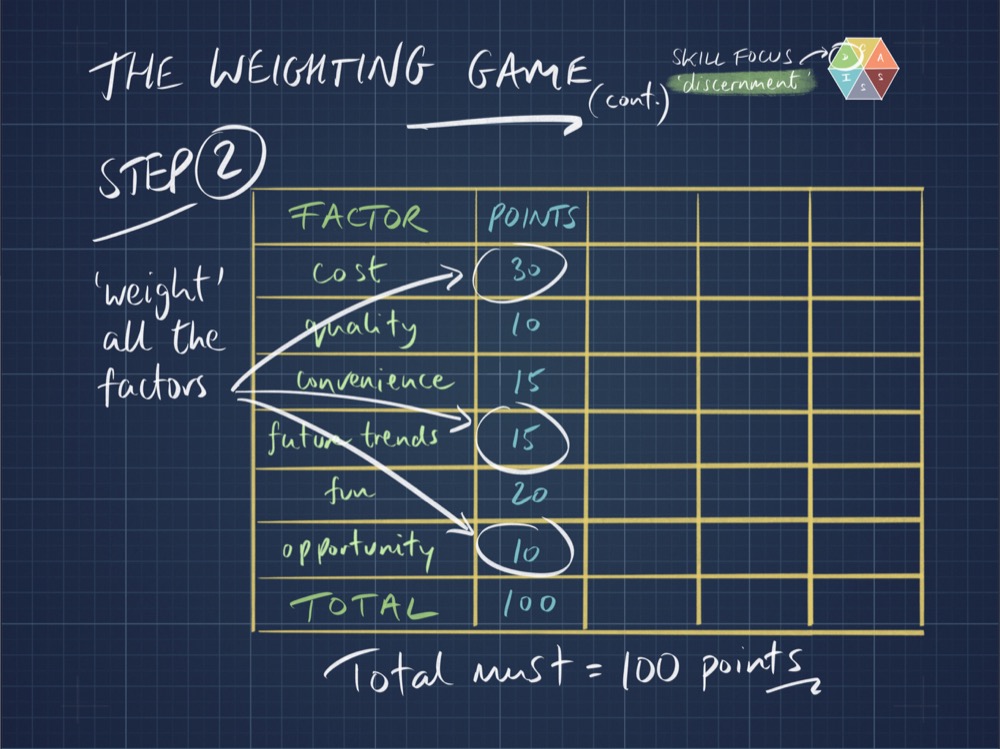 THE WEIGHTING GAME
(cont.)
SKILL FOCUS
'discernment'
D C A
I S S
STEP 2
'weight'
all the
factors
FACTOR POINTS
cost 30
quality 10
convenience 15
future trends 15
fun 20
opportunity 10
TOTAL 100
Total must = 100 points